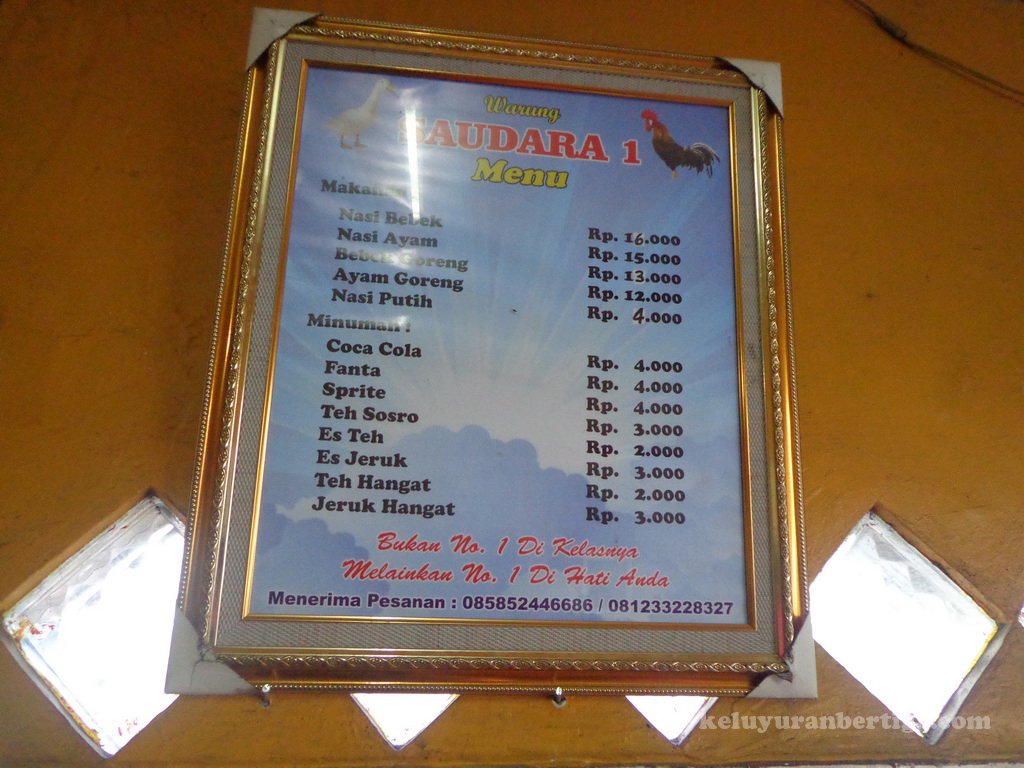 Warung
SAUDARA 1
Menu
Makanan
Nasi Bebek Rp. 16.000
Nasi Ayam Rp. 15.000
Bebek Goreng Rp. 13.000
Ayam Goreng Rp. 12.000
Nasi Putih Rp. 4.000
Minuman :
Coca Cola Rp. 4.000
Fanta Rp. 4.000
Sprite Rp. 4.000
Teh Sosro Rp. 3.000
Es Teh Rp. 2.000
Es Jeruk Rp. 3.000
Teh Hangat Rp. 2.000
Jeruk Hangat Rp. 3.000
Bukan No. 1 Di Kelasnya
Melainkan No. 1 Di Hati Anda
Menerima Pesanan : 085852446686 / 081233228327
keluyuranbertiga.com